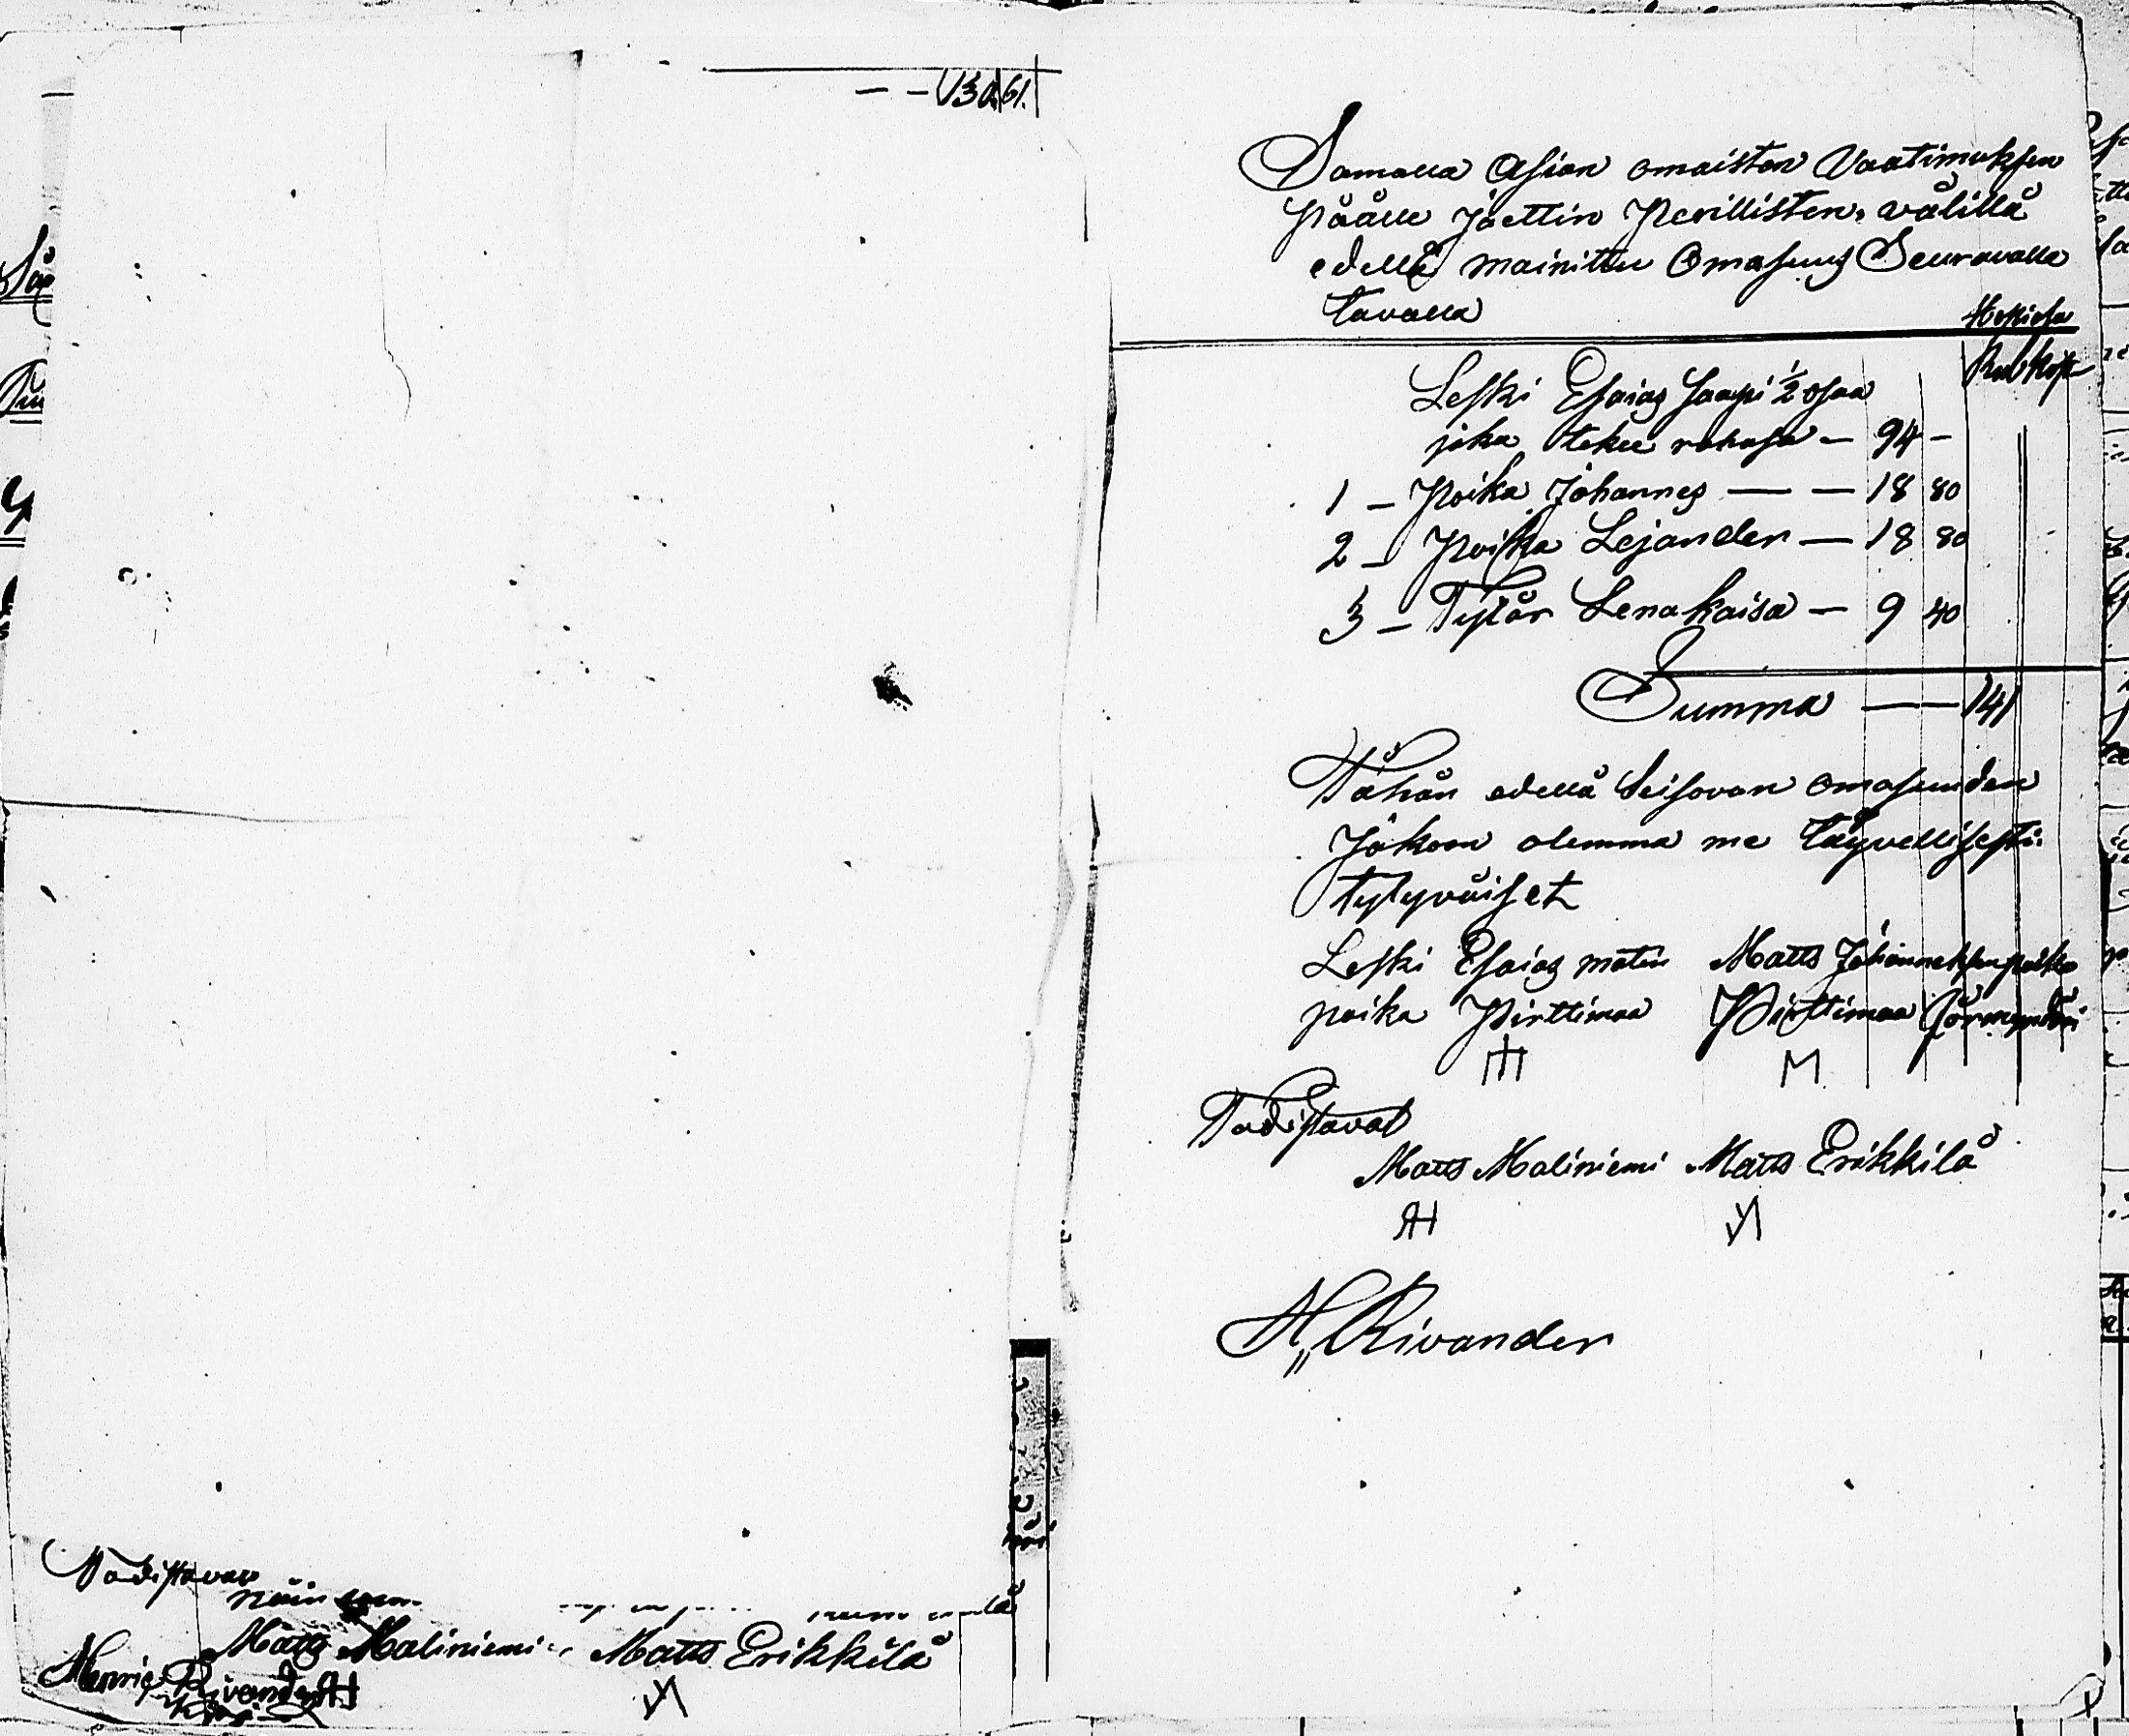 130 61.
Samalla Asian omaisten Vaatimuksen
päälle Jaettin Perillisten välillä
edellä mainittu Omasuus Seuravalla
tavalla
Rub Kop
Leski Esaias saapi 1/2 osaa
joka tekee rahasa — 94 —
1 — Poika Johannes — — 18 80
2 — Poika Lejander — 18 80
3 — Tytär Lenakaisa — 9 40
Summa — — 141
Tähän edellä Seisovan omasuuden
Jakoon olemma me täyvellisesti
tytyväiset
Leski Esaias matin Matts Johanneksenpoika
poika Pirttimaa Pirttimaa Förmyndäri
M
Todistavat
Matts Maliniemi Matts Erikkilä
H,, Rivander
Todistavat
näin
Matts Maliniemi Matts Erikkilä
Henric Rivander